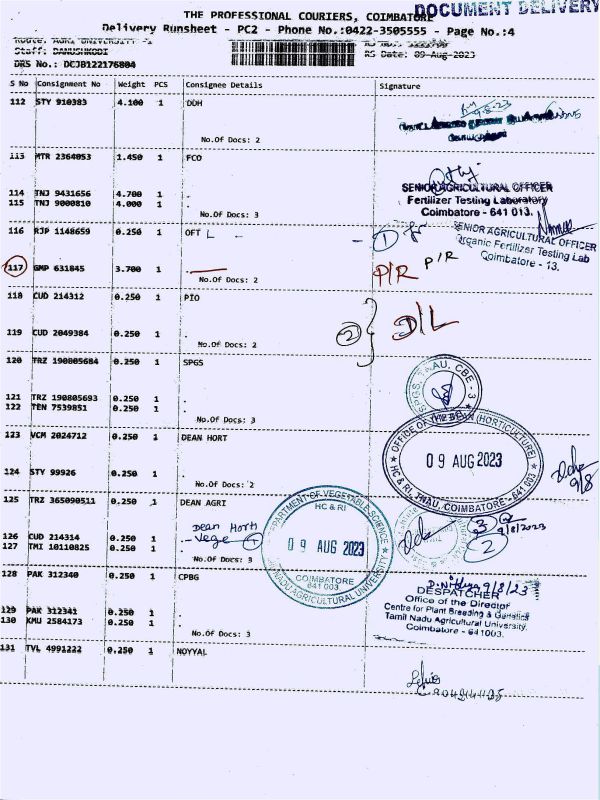 DOCUMENT DELIVERY
THE PROFESSIONAL COURIERS, COIMBATORE
Delivery Runsheet - PC2 - Phone No.:0422-3505555 - Page No.:4
Route: AGRI UNIVERSITY -1
Staff: DANUSHKODI
RS Date: 09-Aug-2023
DRS No.: DCJB122176804
S No Consignment No Weight PCS Consignee Details Signature
112 STY 910383 4.100 1 DDH
No.Of Docs: 2
113 MTR 2364053 1.450 1 FCO
114 TNJ 9431656 4.700 1 .
115 TNJ 9000810 4.000 1 .
No.Of Docs: 3
SENIOR AGRICULTURAL OFFICER
Fertilizer Testing Laboratory
Coimbatore - 641 013.
116 RJP 1148659 0.250 1 OFT L
1
SENIOR AGRICULTURAL OFFICER
Organic Fertilizer Testing Lab
Coimbatore - 13.
117 GMP 631845 3.700 1
No.Of Docs: 2
P/R P/R
118 CUD 214312 0.250 1 PIO
119 CUD 2049384 0.250 1 .
No.Of Docs: 2
2 D/L
120 TRZ 190805684 0.250 1 SPGS
121 TRZ 190805693 0.250 1 .
122 TEN 7539851 0.250 1 .
No.Of Docs: 3
SPGS, TNAU, CBE - 3
123 VCM 2024712 0.250 1 DEAN HORT
124 STY 99926 0.250 1 .
No.Of Docs: 2
OFFICE OF THE DEAN (HORTICULTURE)
09 AUG 2023
HC & RI, TNAU, COIMBATORE - 641 003
9/8
125 TRZ 365090511 0.250 1 DEAN AGRI
126 CUD 214314 0.250 1
127 TMI 10110825 0.250 1 .
Dean Horti
- Vege
No.Of Docs: 3
DEPARTMENT OF VEGETABLE SCIENCE
HC & RI
09 AUG 2023
COIMBATORE
641 003
TAMILNADU AGRICULTURAL UNIVERSITY
3
9/8/2023
2
128 PAK 312340 0.250 1 CPBG
129 PAK 312341 0.250 1 .
130 KMU 2584173 0.250 1 .
No.Of Docs: 3
9/8/23
DESPATCHER
Office of the Director
Centre for Plant Breeding & Genetics
Tamil Nadu Agricultural University,
Coimbatore - 641003.
131 TVL 4991222 0.250 1 NOYYAL